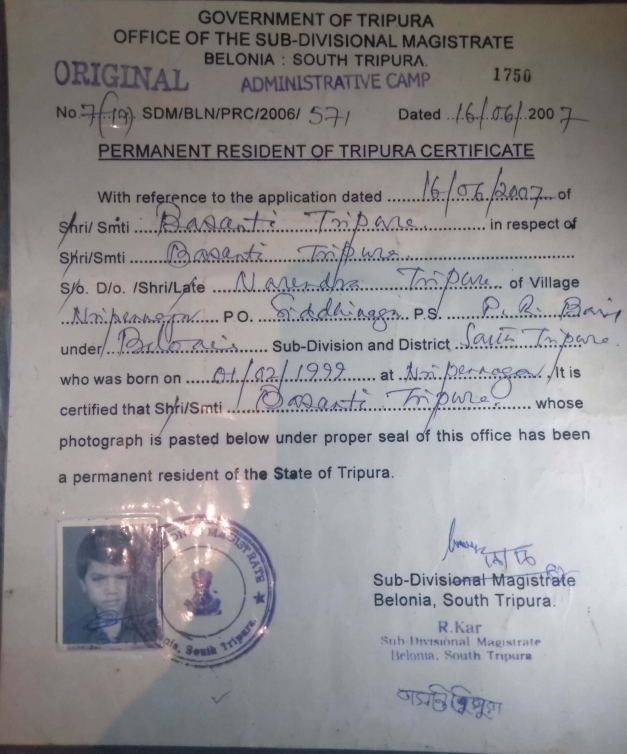 GOVERNMENT OF TRIPURA
OFFICE OF THE SUB-DIVISIONAL MAGISTRATE
BELONIA : SOUTH TRIPURA.
ORIGINAL ADMINISTRATIVE CAMP 1750
No 7(19) SDM/BLN/PRC/2006/ 571 Dated 16/06/2007
PERMANENT RESIDENT OF TRIPURA CERTIFICATE
With reference to the application dated 16/06/2007 of
Shri/ Smti Basanti Tripura in respect of
Shri/Smti Basanti Tripura
S/o. D/o. /Shri/Late Narendra Tripura of Village
P.O. P.S. P. R. Bari
under Sub-Division and District South Tripura.
who was born on 01/02/1999 at It is
certified that Shri/Smti Basanti Tripura whose
photograph is pasted below under proper seal of this office has been
a permanent resident of the State of Tripura.
MAGISTRATE
South Tripura.
Sub-Divisional Magistrate
Belonia, South Tripura.
R.Kar
Sub-Divisional Magistrate
Belonia, South Tripura